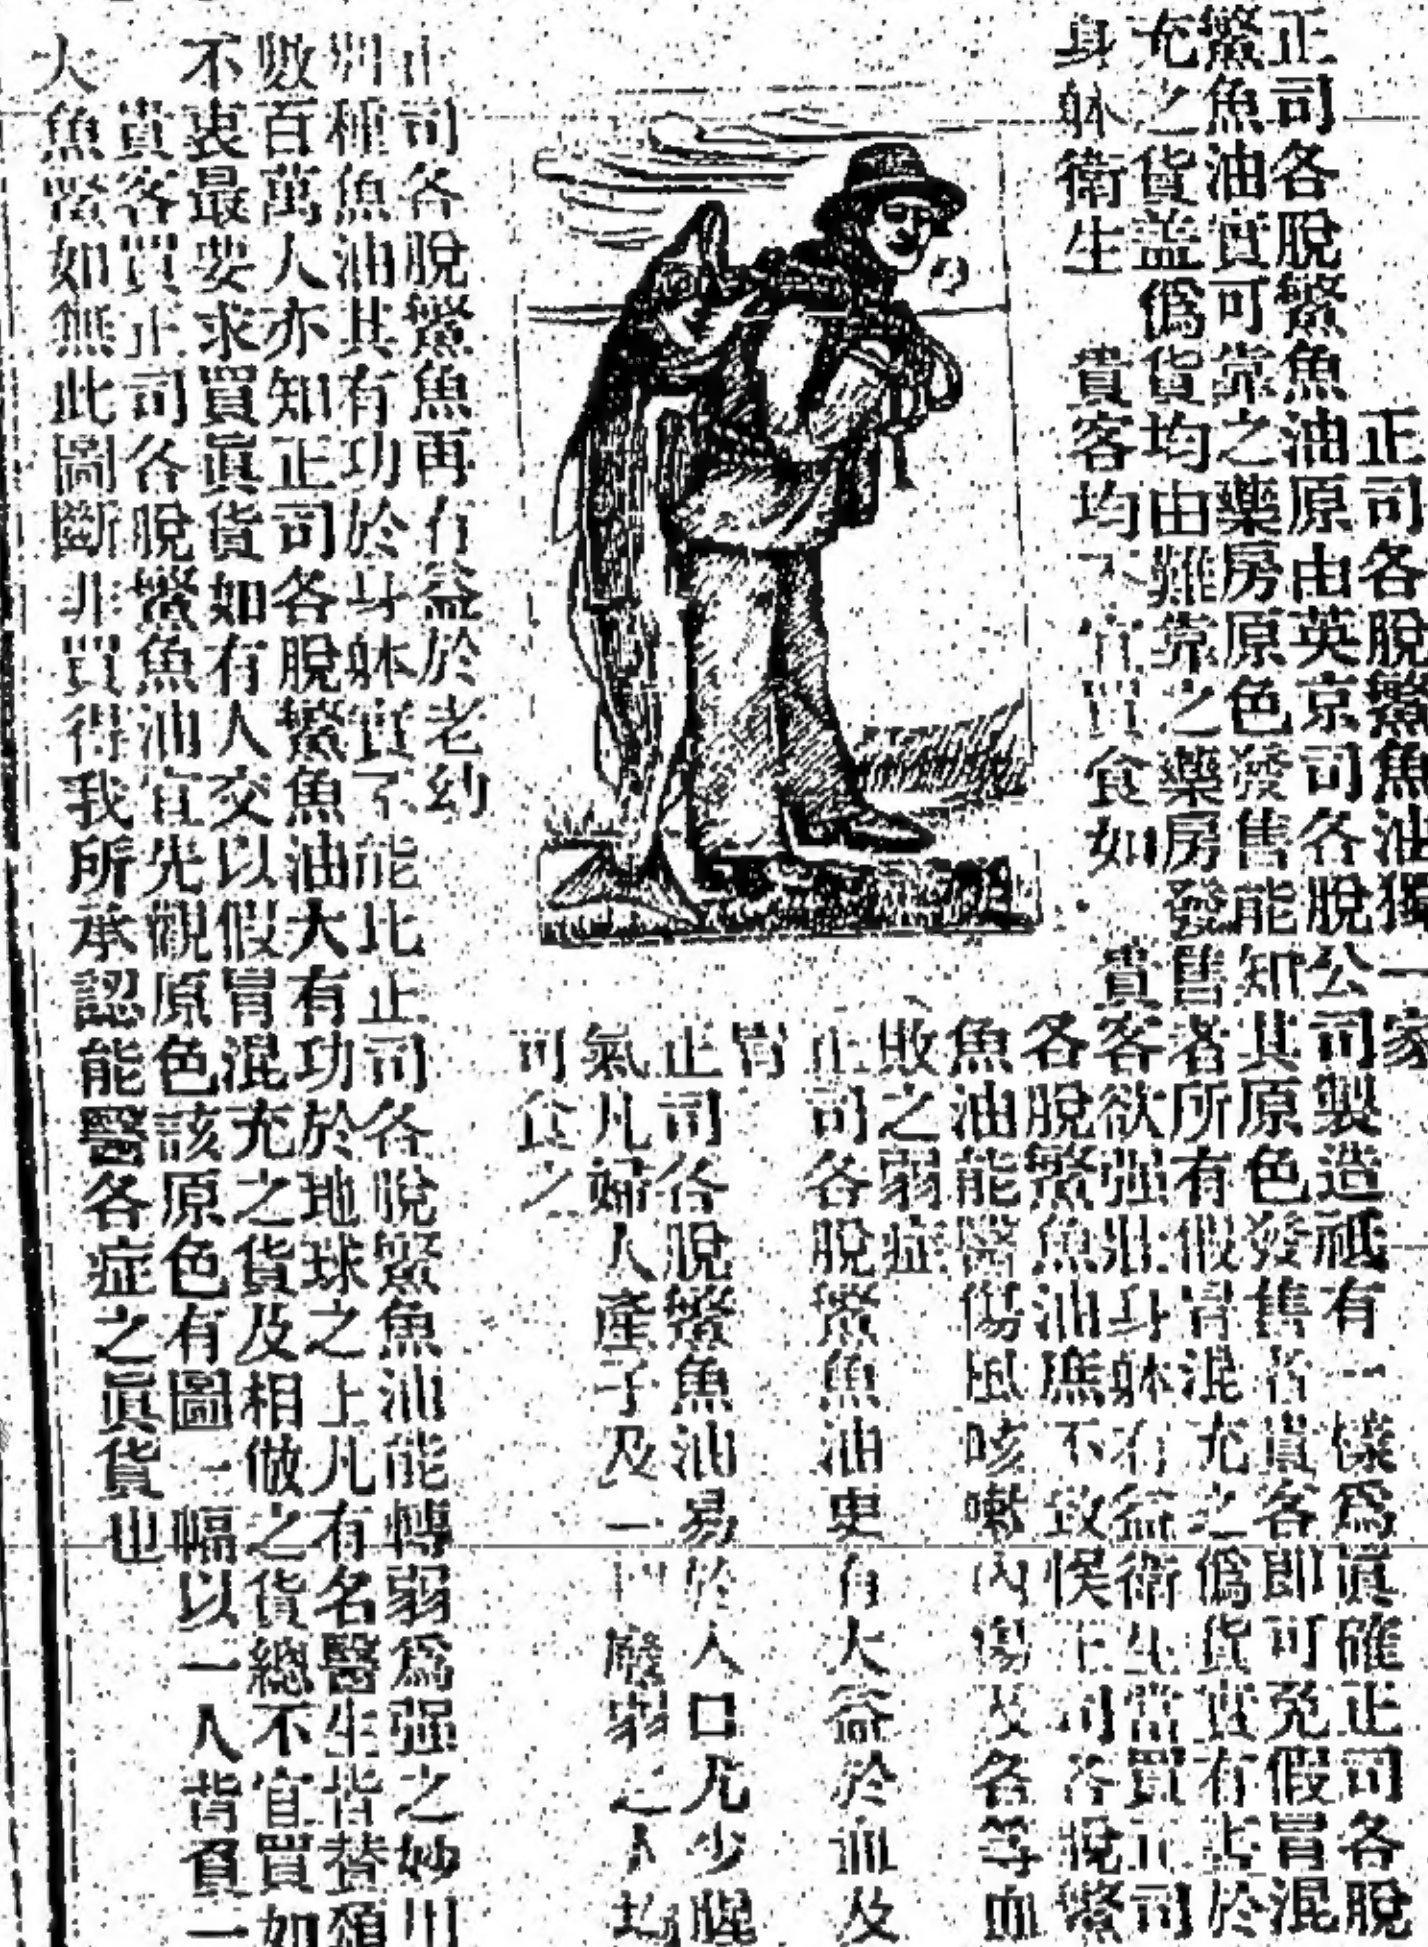 正司各脫鰵魚油獨一家
正司各脫鰵魚油原由英京司各脫公司製造祗有一樣爲眞確正司各脫
鰵魚油實可靠之藥房原色發售能知其原色發售者貴客即可免假冒混
充之貨蓋僞貨均由難靠之藥房發售者所有假冒混充之僞貨實有害於
身躰衛生 貴客均不宜買食如 貴客欲强壯身躰有益衛生當買正司
各脫鰵魚油庶不致悞正司各脫鰵
魚油能醫傷風咳嗽內傷及各等血
敗之弱症
正司各脫鰵魚油更有大益於血及
胃
正司各脫鰵魚油易於入口尤少脾
氣凡婦人產子及一切廢弱之人均
可食之
正司各脫鰵魚再有益於老幼
別種魚油其有功於身躰實不能比正司各脫鰵魚油能轉弱爲强之妙
數百萬人亦知正司各脫鰵魚油大有功於地球之上凡有名醫生皆替頌
不衷最要求買眞貨如有人交以假冒混充之貨及相倣之貨總不宜買如
貴客買正司各脫鰵魚油宜先觀原色該原色有圖一幅以一人背負一
大魚如無此圖斷非買得我所承認能醫各症之眞貨也